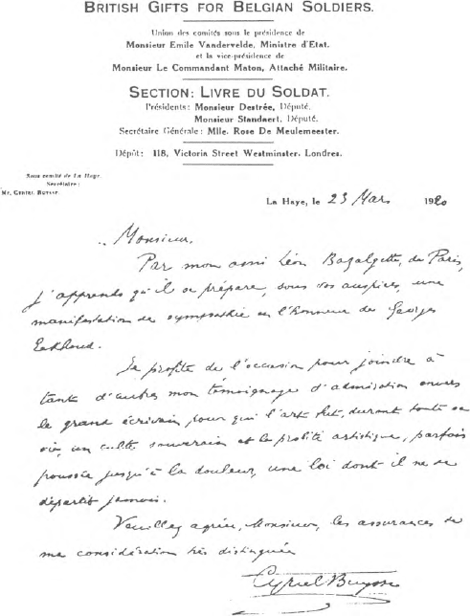 BRITISH GIFTS FOR BELGIAN SOLDIERS.
Union des comités sous le présidence de
Monsieur Emile Vandervelde, Ministre d'Etat.
et la vice-présidence de
Monsieur Le Commandant Maton, Attaché Militaire.
SECTION: LIVRE DU SOLDAT.
Présidents: Monsieur Destrée, Député.
Monsieur Standaert, Député.
Secrétaire Générale: Mlle. Rose De Meulemeester.
Dépôt: 118, Victoria Street Westminster. Londres.
Sous comité de La Haye
Secrétaire:
Mr. Cyriel Buysse
La Haye, le 23 Mars 1920
Monsieur,
Par mon ami Léon Bazalgette, de Paris,
j'apprends qu'il se prépare, sous vos auspices, une
manifestation de sympathie en l'honneur de Georges
Eekhoud.
Je profite de l'occasion pour joindre à
tant d'autres mon témoignage d'admiration envers
le grand écrivain pour qui l'art fut, durant toute sa
vie, un culte souverain et la probité artistique, parfois
poussée jusqu'à la douleur, une loi dont il ne se
départit jamais.
Veuillez agréer, Monsieur, les assurances de
ma considération très distinguée
Cyriel Buysse